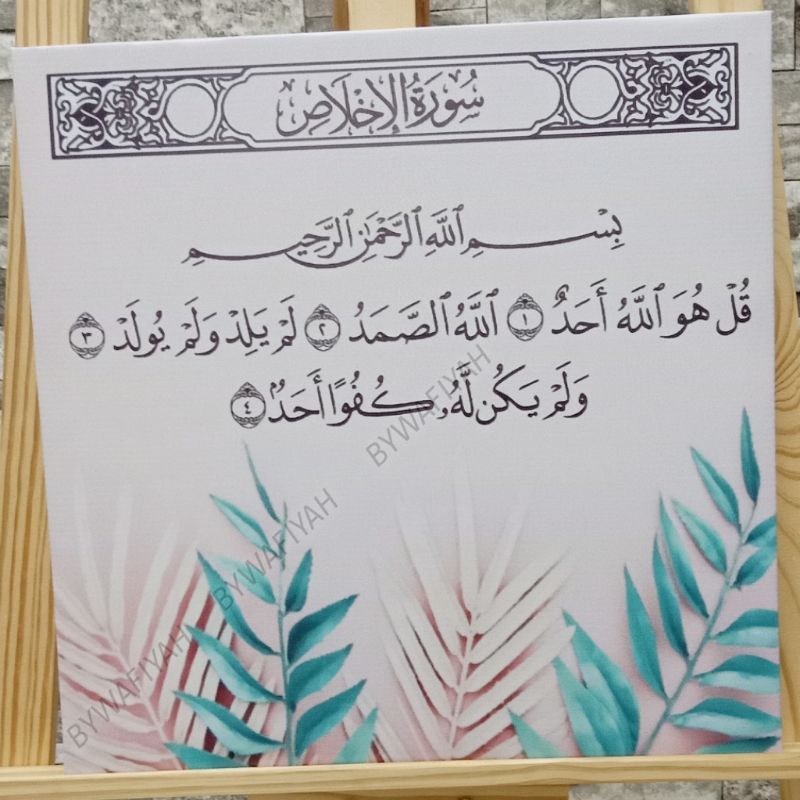 سُورَةُ الإِخْلَاصِ
بِسْمِ ٱللَّهِ ٱلرَّحْمَٰنِ ٱلرَّحِيمِ
قُلْ هُوَ ٱللَّهُ أَحَدٌ ١ ٱللَّهُ ٱلصَّمَدُ ٢ لَمْ يَلِدْ وَلَمْ يُولَدْ ٣
وَلَمْ يَكُن لَّهُۥ كُفُوًا أَحَدٌۢ ٤
BYWAFIYAH
BYWAFIYAH
BYWAFIYAH